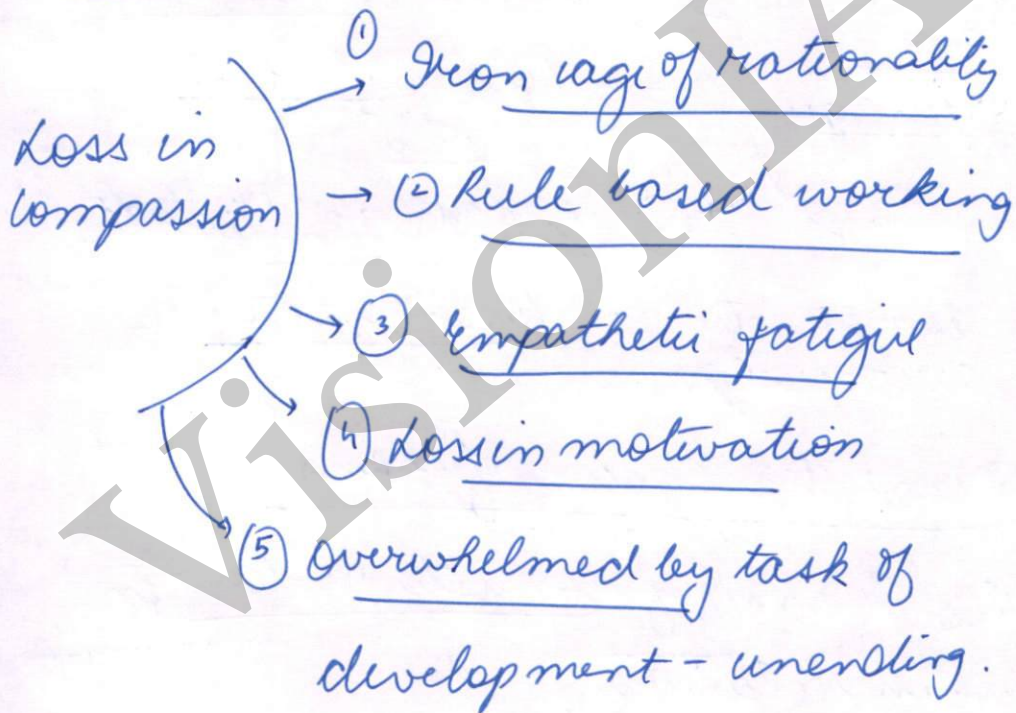 Loss in
compassion
① Iron cage of rationality
② Rule based working
③ Empathetic fatigue
④ Loss in motivation
⑤ Overwhelmed by task of
development - unending.
VisionIA